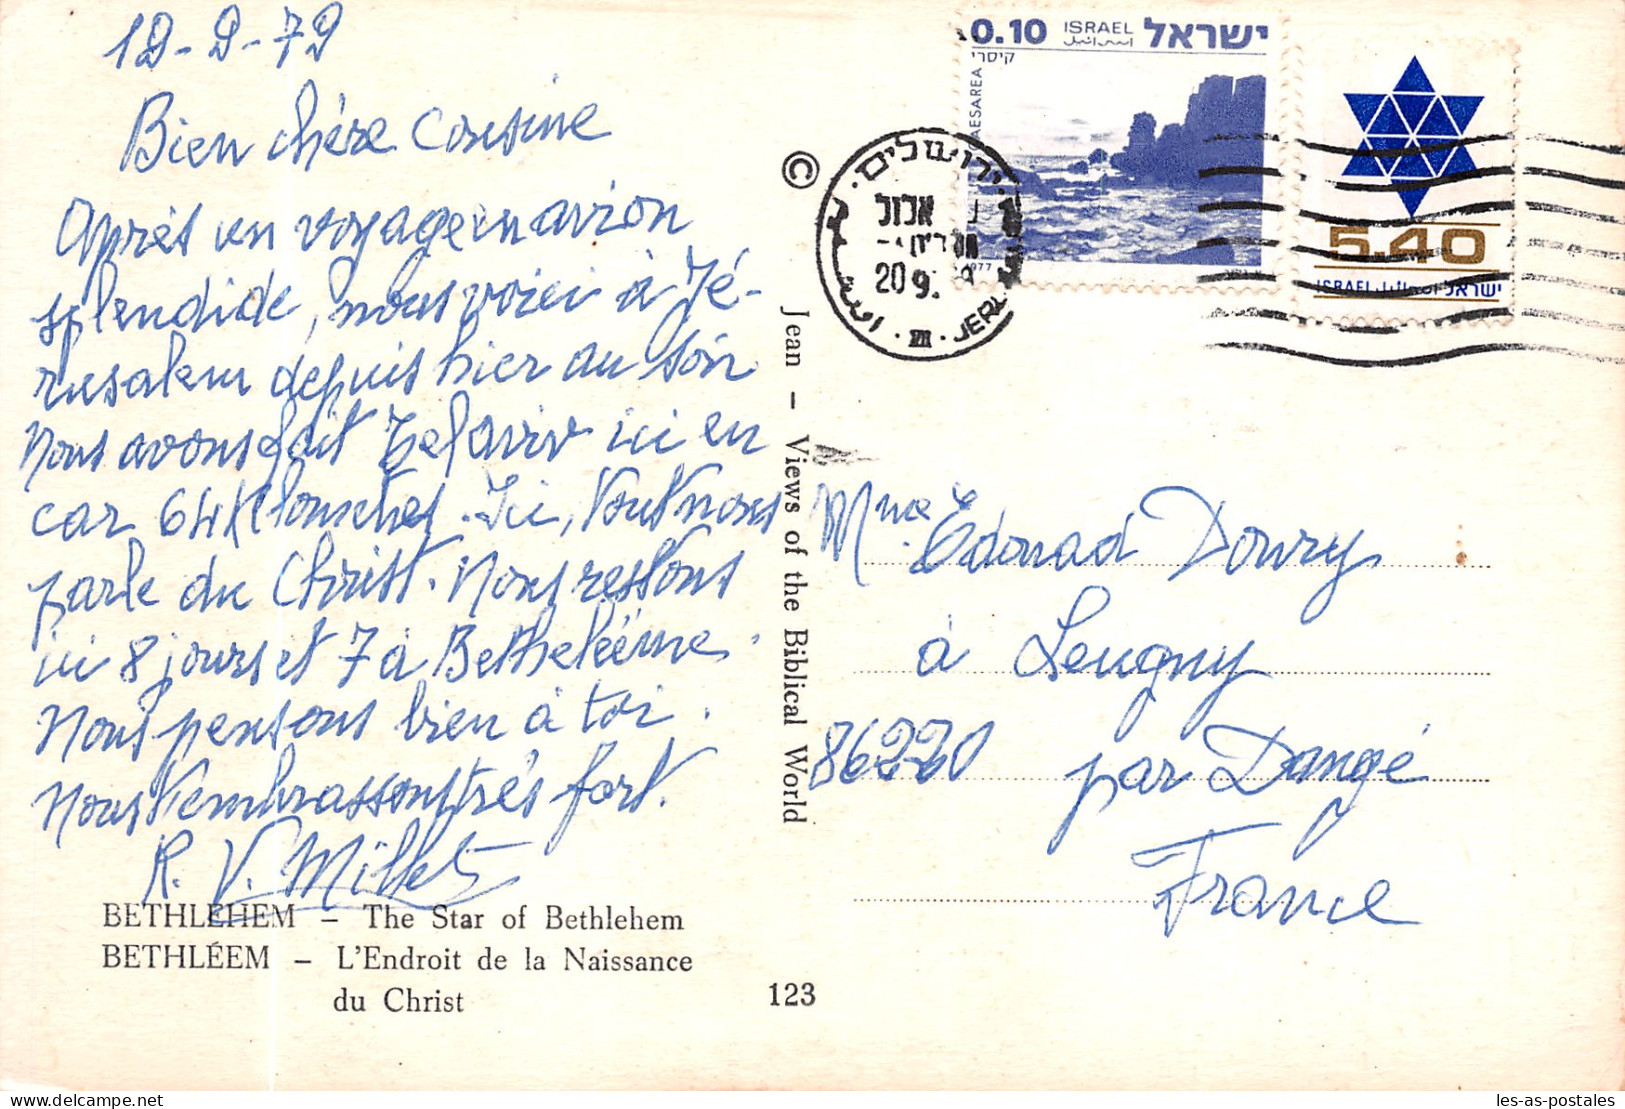 19-9-79
Bien chère Cousine
Après un voyage en avion
splendide, nous voici à Jé-
rusalem depuis hier au soir
Nous avons fait Telaviv ici en
car 64 Kilomètres. Ici, tout nous
parle du Christ. Nous restons
ici 8 jours et 7 à Bethéléeme.
Nous pensons bien à toi.
Nous t'embrassons très fort.
R. V. Millet
BETHLEHEM – The Star of Bethlehem
BETHLÉEM – L'Endroit de la Naissance
du Christ
123
© Jean – Views of the Biblical World
0.10 ISRAEL اسرائيل ישראל
קיסרי
AESAREA
1977
5.40
ISRAEL اسرائيل ישראל
ירושלים
אלול
20 9.
JER
Mme Edouad Doury
à Leugny
86220 par Dangé
France
les-as-postales